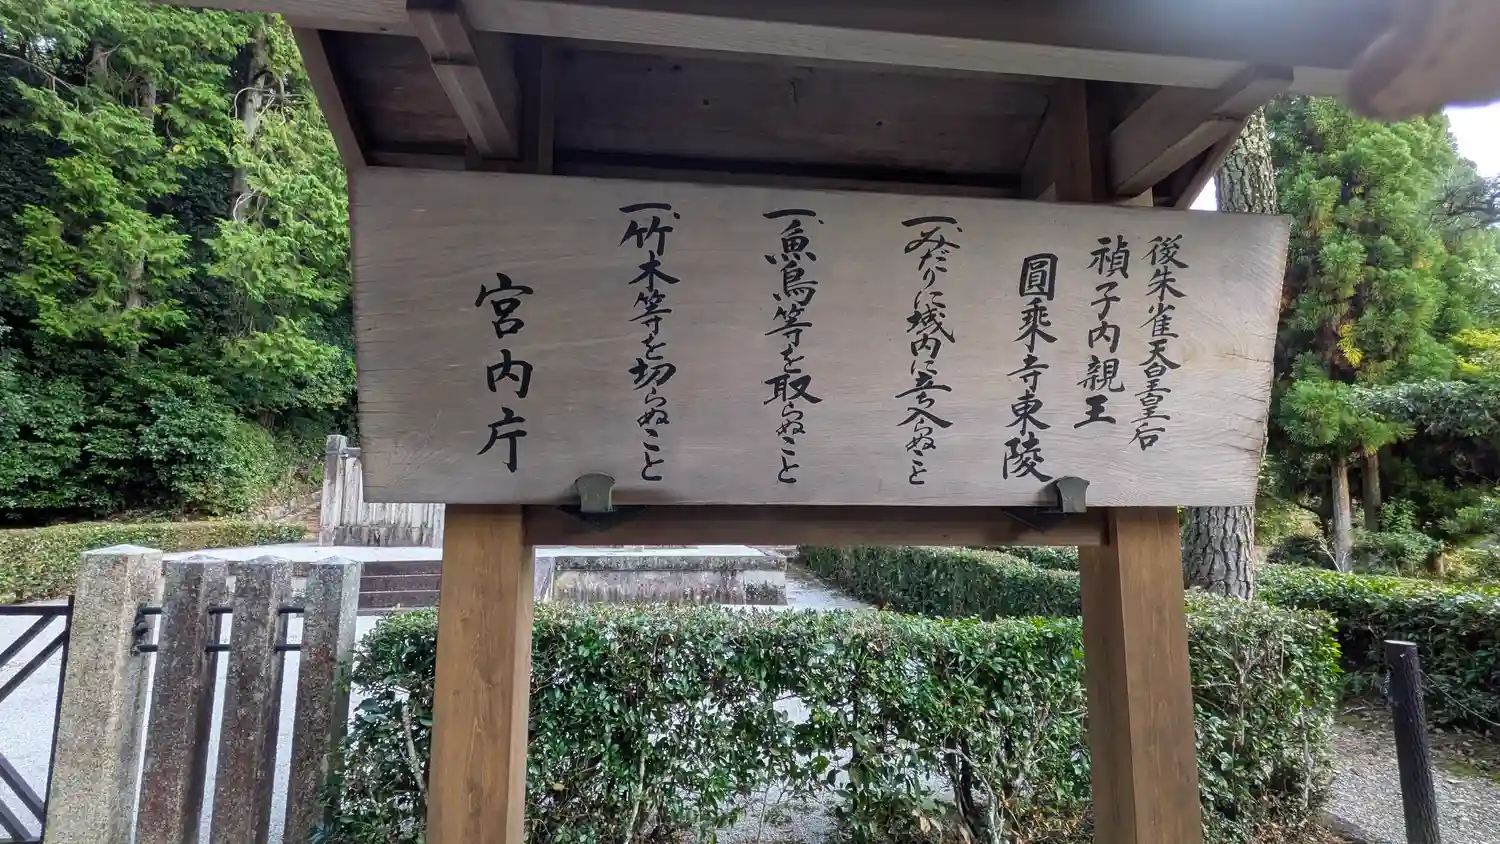 後朱雀天皇皇后
禎子内親王
圓乘寺東陵
一、みだりに域内に立ち入らぬこと
一、魚鳥等を取らぬこと
一、竹木等を切らぬこと
宮内庁